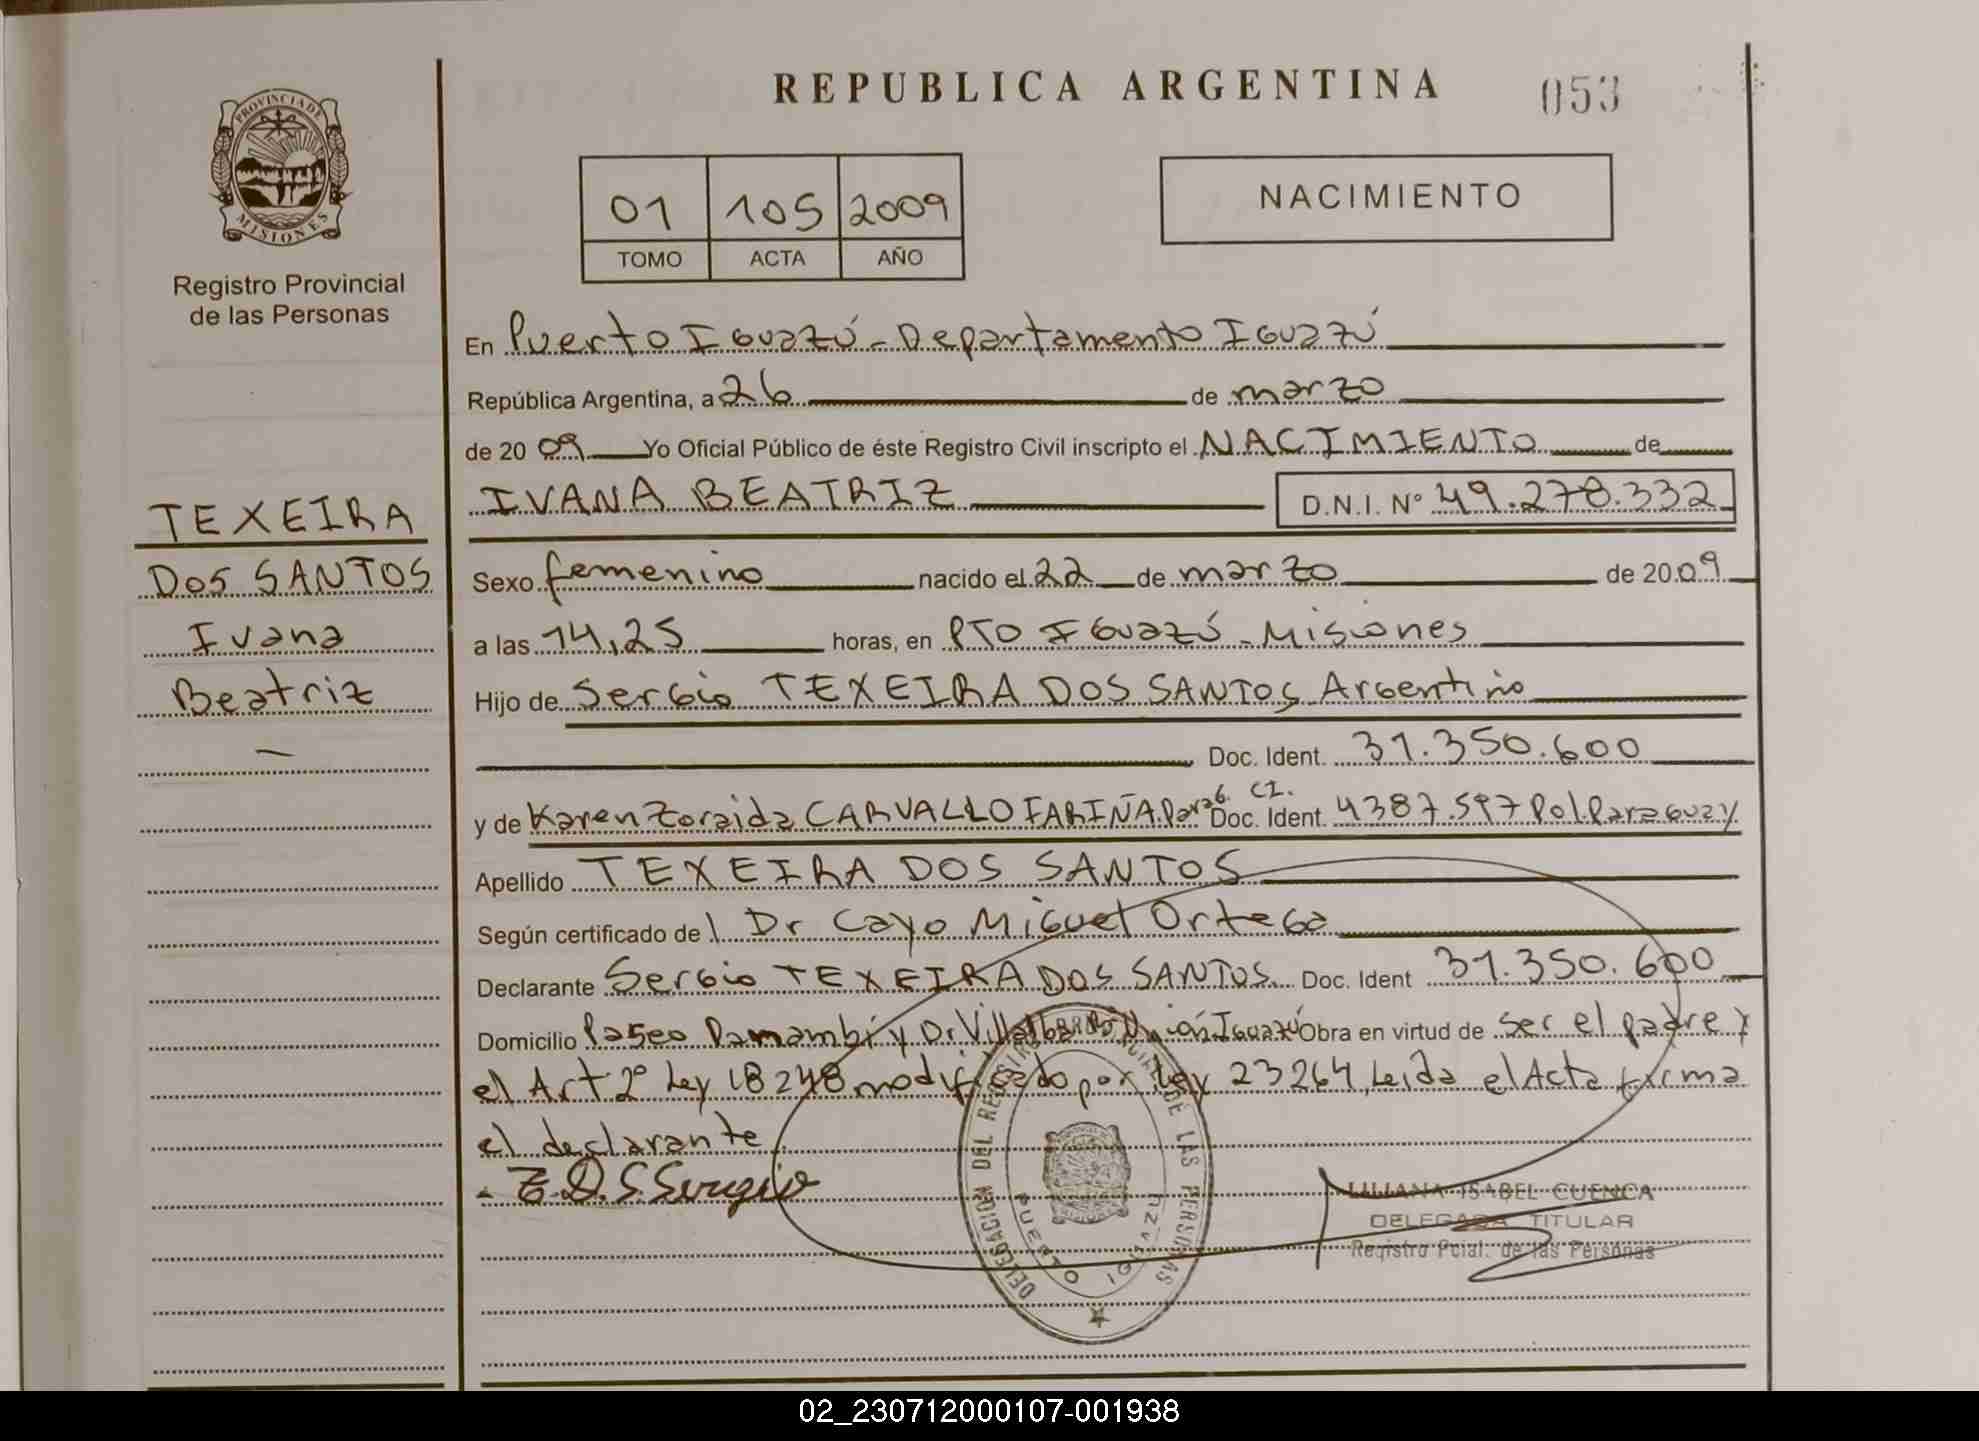 REPUBLICA ARGENTINA
053
PROVINCIA DE
MISIONES
Registro Provincial
de las Personas
01 105 2009
TOMO ACTA AÑO
NACIMIENTO
En Puerto Iguazú - Departamento Iguazú
República Argentina, a 26 de marzo
de 2009 Yo Oficial Público de éste Registro Civil inscripto el NACIMIENTO de
IVANA BEATRIZ D.N.I. N° 49.278.332
TEXEIRA
DOS SANTOS
Ivana
Beatriz
Sexo femenino nacido el 22 de marzo de 2009
a las 14,25 horas, en PTO Iguazú - Misiones
Hijo de Sergio TEXEIRA DOS SANTOS Argentino
Doc. Ident. 31.350.600
y de Karen Zoraida CARVALLO FARIÑA Parag. CI. Doc. Ident. 4387.597 Pol. Paraguay
Apellido TEXEIRA DOS SANTOS
Según certificado de l Dr Cayo Miguel Ortega
Declarante Sergio TEXEIRA DOS SANTOS Doc. Ident 31.350.600
Domicilio Paseo Panambí y Dr Villalba Unión Iguazú Obra en virtud de ser el padre y
el Art 2º Ley 18248 modificado por Ley 23264, Leida el Acta firma
el declarante
T.D.S Sergio
DELEGACION DEL REGISTRO DE LAS PERSONAS
PUERTO IGUAZU
LILIANA ISABEL CUENCA
DELEGADA TITULAR
Registro Pcial. de las Personas
02_230712000107-001938